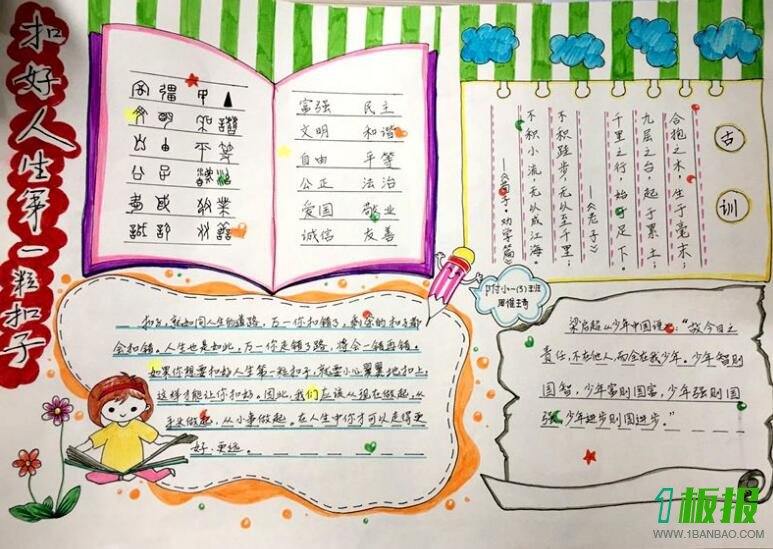 扣好人生第一粒扣子
富强 民主
文明 和谐
自由 平等
公正 法治
爱国 敬业
诚信 友善
古训
合抱之木,生于毫末;
九层之台,起于累土;
千里之行,始于足下。
——《老子》
不积跬步,无以至千里;
不积小流,无以成江海。
——《荀子·劝学篇》
附小一(5)班
周惟
扣子,就如同人生的道路,万一你扣错了,剩余的扣子都
会扣错。人生也是如此,万一你走错了路,将会一错再错。
如果你想要扣好人生第一粒扣子,就要小心翼翼地扣上,
这样才能让你扣好。因此,我们应该从现在做起,从
手来做起,从小事做起。在人生中你才可以走得更
好、更远。
梁启超《少年中国说》:“故今日之
责任,不在他人,而全在我少年。少年智则
国智,少年富则国富,少年强则国
强,少年进步则国进步。”
1板报
WWW.1BANBAO.COM